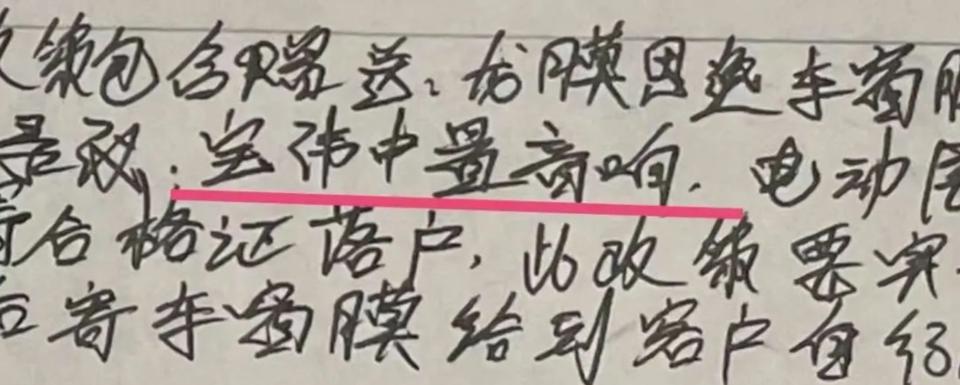 包含赠送.龙膜因选车窗膜
是改,宝华中置音响.电动
合格证落户,此政策要实
寄车窗膜给到客户自行